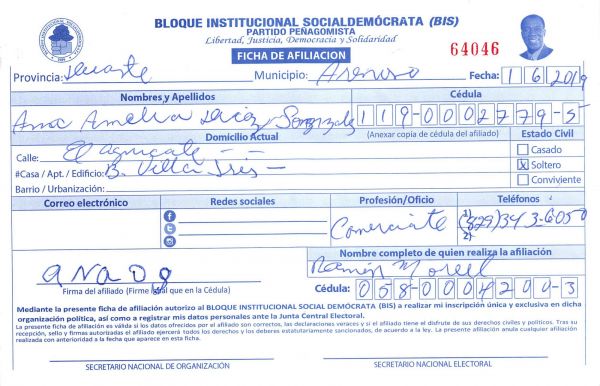 BLOQUE INSTITUCIONAL SOCIALDEMÓCRATA (BIS)
PARTIDO PEÑAGOMISTA
Libertad, Justicia, Democracia y Solidaridad
FICHA DE AFILIACION
64046
Provincia: Duarte Municipio: Arenoso Fecha: 1 6 2019
Nombres y Apellidos Cédula
Ana Amelia 119-0002779-5
Domicilio Actual (Anexar copia de cédula del afiliado) Estado Civil
Calle: El aguacate - -
Casado
#Casa / Apt. / Edificio: B. Villa
X Soltero
Barrio / Urbanización:
Conviviente
Correo electrónico Redes sociales Profesión/Oficio Teléfonos
Comerciate 1) (829) 343-6050
2)
Nombre completo de quien realiza la afiliación
Ramón Morel
Firma del afiliado (Firme igual que en la Cédula)
Cédula: 058-0004200-3
Mediante la presente ficha de afiliación autorizo al BLOQUE INSTITUCIONAL SOCIAL DEMÓCRATA (BIS) a realizar mi inscripción única y exclusiva en dicha
organización política, así como a registrar mis datos personales ante la Junta Central Electoral.
La presente ficha de afiliación es válida si los datos ofrecidos por el afiliado son correctos, las declaraciones veraces y si el afiliado tiene el disfrute de sus derechos civiles y políticos. Tras su
recepción, sello y firmas autorizadas el afiliado ejercerá todos los derechos y los deberes estatutariamente sancionados, de acuerdo a la ley. La presente afiliación anula cualquier afiliación
realizada con anterioridad a la fecha que aparece en esta ficha.
SECRETARIO NACIONAL DE ORGANIZACIÓN SECRETARIO NACIONAL ELECTORAL